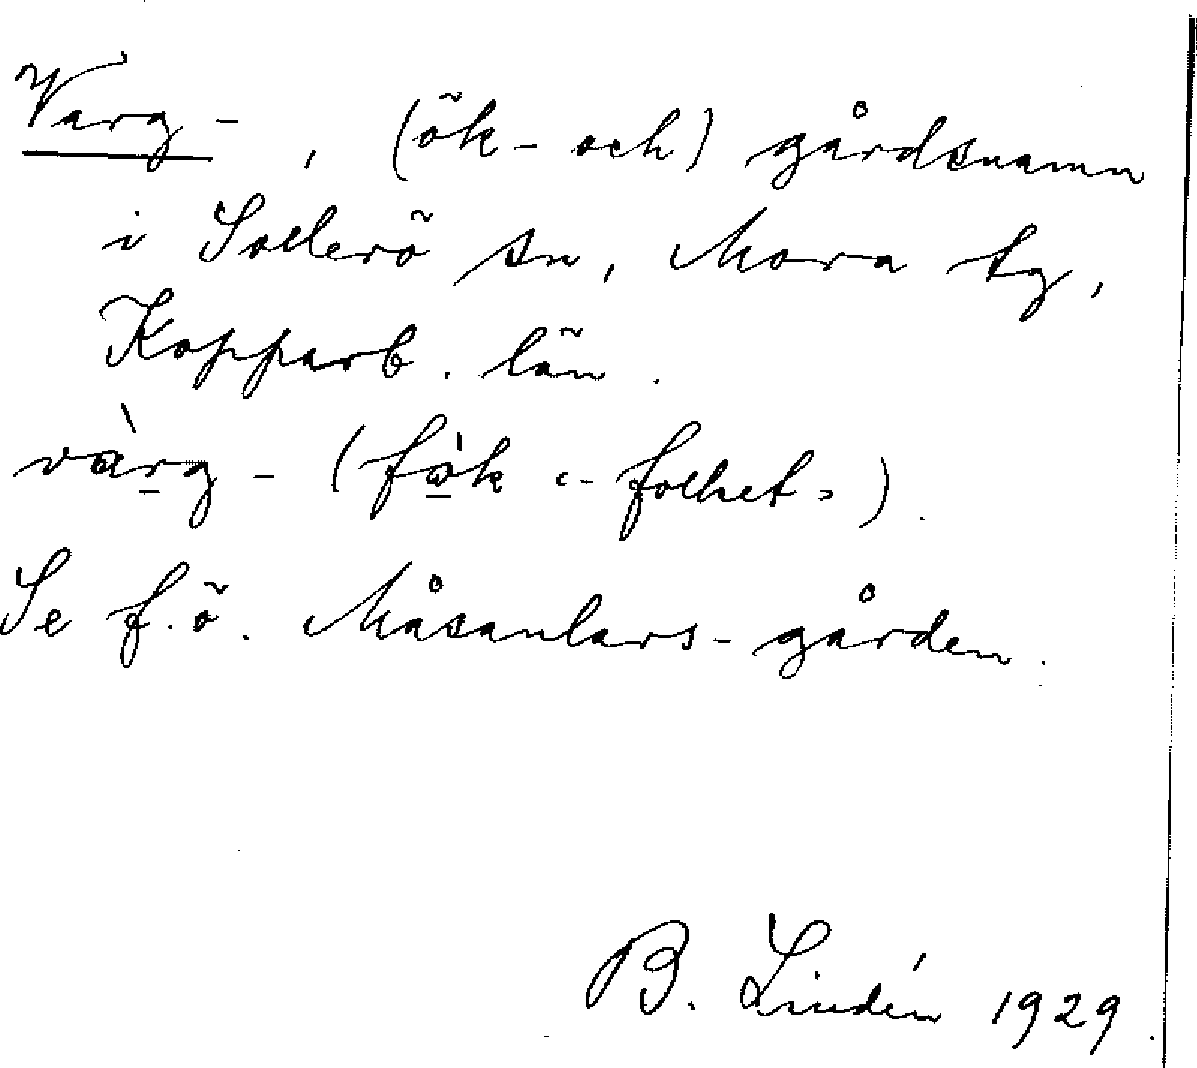 Varg-, (ök- och) gårdsnamn
i Sollerö sn, Mora tg,
Kopparb. län.
va̒rg- (fo̒k «-folket»).
Se f.ö. Måsanlars-gården.
B. Lindén 1929.